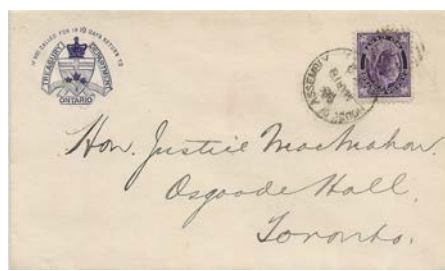 IF NOT CALLED FOR IN 10 DAYS RETURN TO
TREASURY DEPARTMENT
ONTARIO
ASSEMBLY
Hon. Justice MacMahon.
Osgoode Hall,
Toronto.